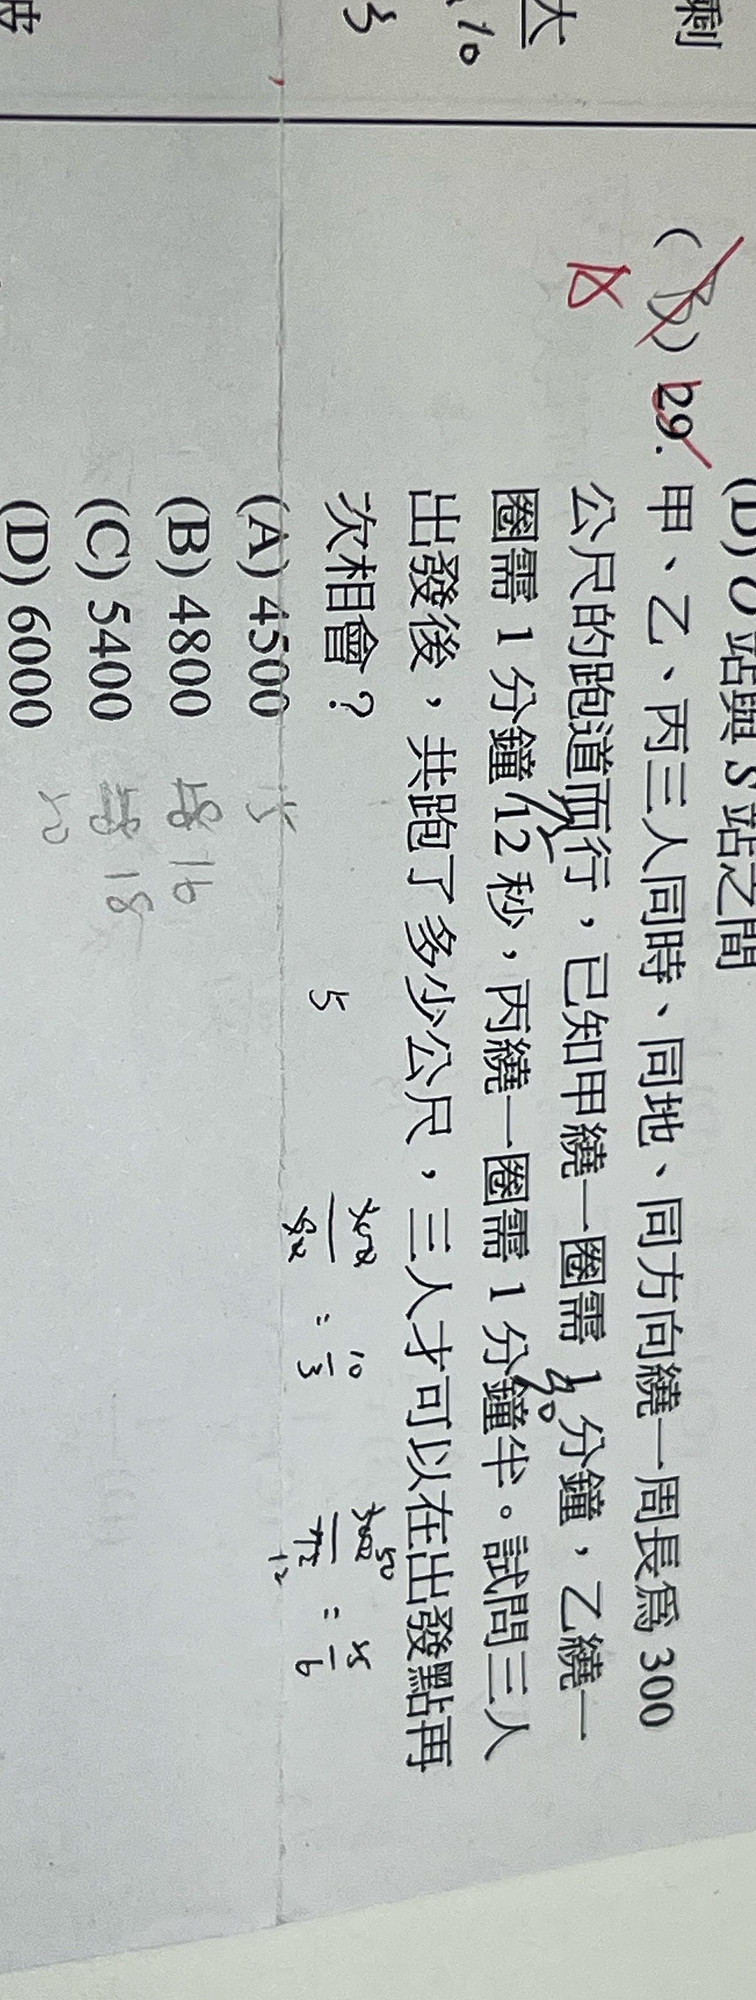 剩
大
10
3
(D) O 站與 S 站之間
(B) 29. 甲、乙、丙三人同時、同地、同方向繞一周長為 300
A
公尺的跑道而行，已知甲繞一圈需 1 分鐘，乙繞一
圈需 1 分鐘 12 秒，丙繞一圈需 1 分鐘半。試問三人
出發後，共跑了多少公尺，三人才可以在出發點再
次相會？
(A) 4500 15
(B) 4800 16
(C) 5400 18
(D) 6000 20
5
= 10/3
= 25/6
12